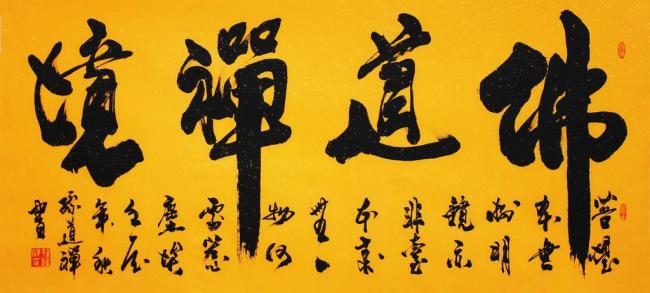 佛道禪境
菩提
本無
樹明
鏡亦
非臺
本來
無一
物何
處惹
塵埃
年秋
道禪
書